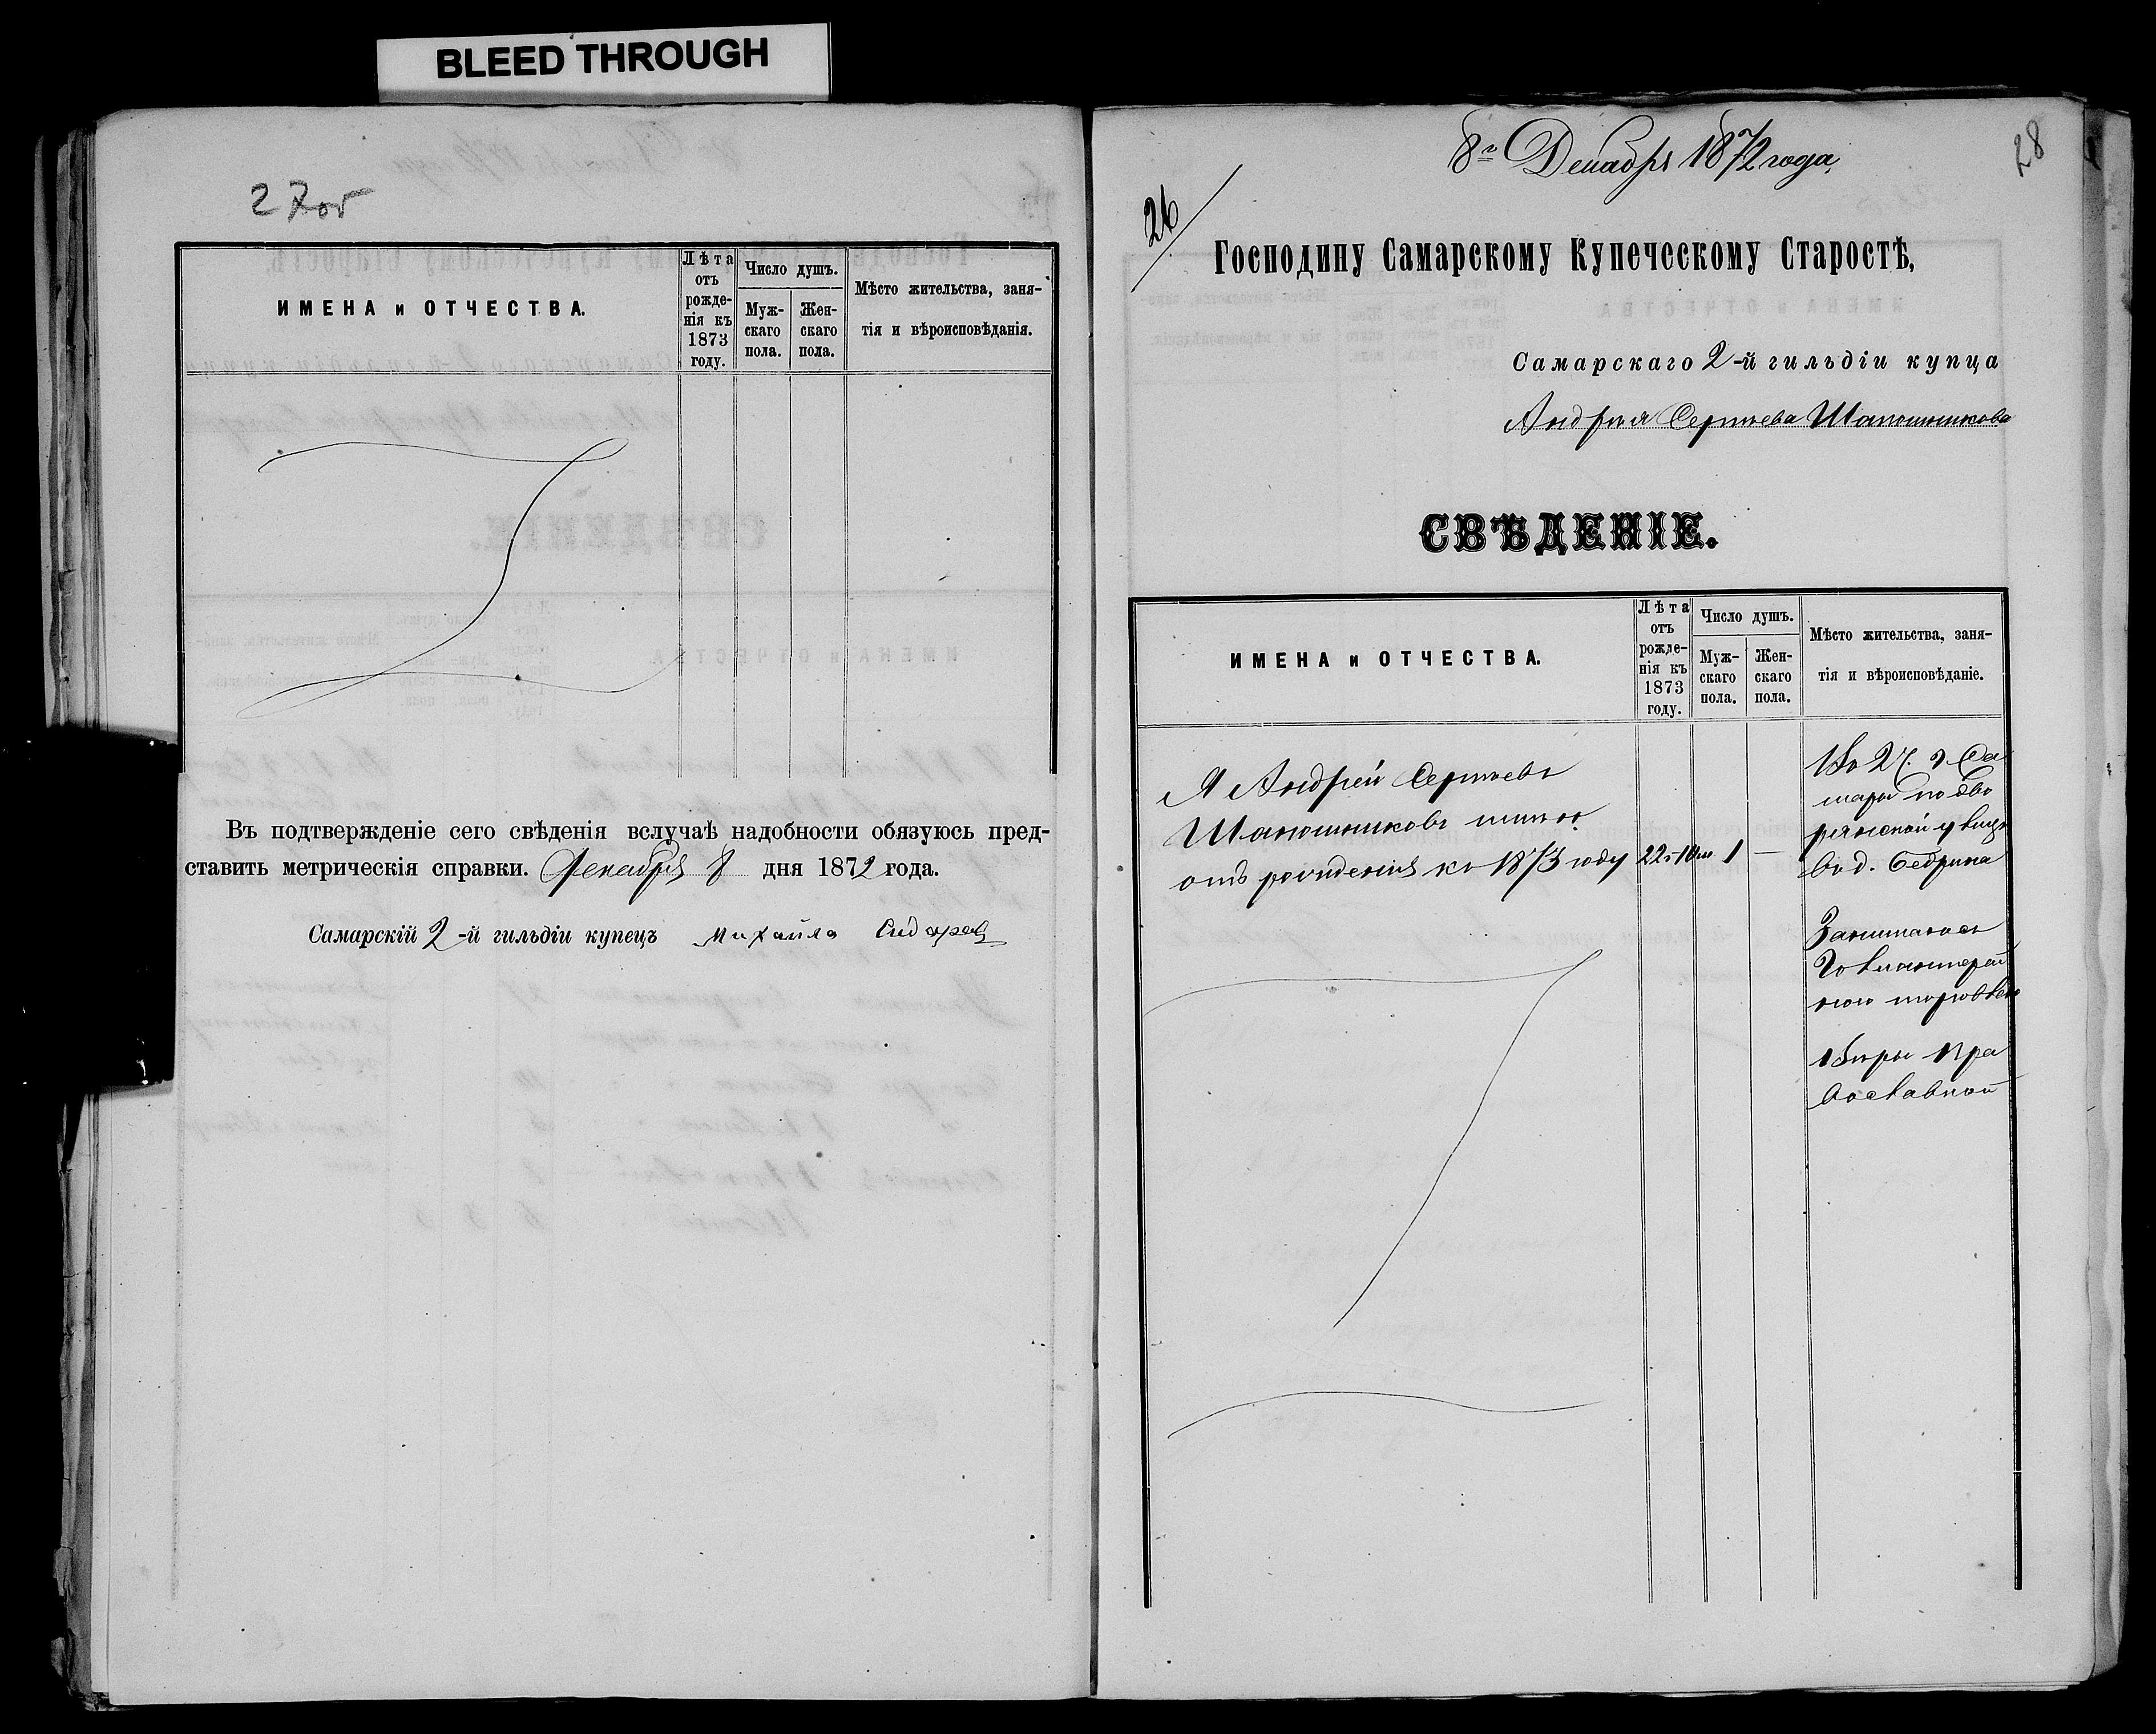 BLEED THROUGH
27 об
ИМЕНА и ОТЧЕСТВА.
Лѣта отъ рожде-нія къ 1873 году.
Число душъ.
Муж-скаго пола.
Жен-скаго пола.
Мѣсто жительства, заня-
тія и вѣроисповѣданія.
Въ подтвержденіе сего свѣденія вслучаѣ надобности обязуюсь пред-
ставить метрическія справки. Декабря 8 дня 1872 года.
Самарскій 2-й гильдіи купецъ Михайла Сидоровъ
28
8го Декабря 1872 года,
26
Господину Самарскому Купеческому Старостѣ,
Самарскаго 2-й гильдіи купца
Андрея Сергѣева Шапошникова
СВѢДЕНІЕ.
ИМЕНА и ОТЧЕСТВА.
Лѣта отъ рожде-нія къ 1873 году.
Число душъ.
Муж-скаго пола.
Жен-скаго пола.
Мѣсто жительства, заня-
тія и вѣроисповѣданіе.
Я Андрей Сергѣевъ
Шапошниковъ имѣю
отъ рожденія къ 1873 году 22 г 10 м 1 —
Во 2 ч. г Са
мары по Дво
рянской улицѣ
в д.
Занимаюсь
Галантерей
ною торговлею
Вѣры Пра
вославной